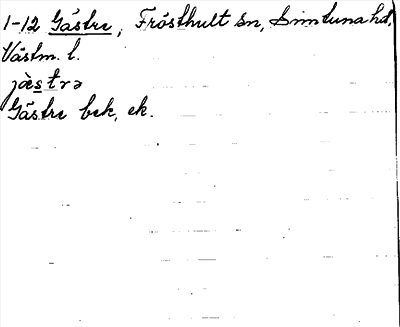 1-12 Gästre, Frösthult sn, Simtuna hd,
Västm. l.
jä̀strə
Gästre bek, ek.